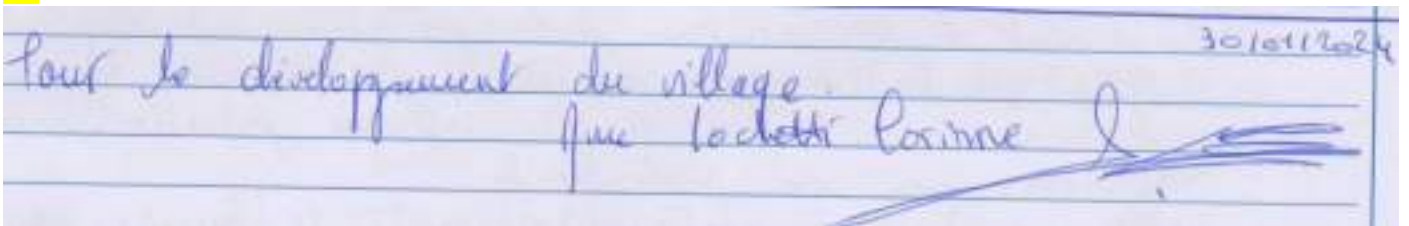 30/01/2024
Pour le développement du village.
Mme Lochetti Corinne